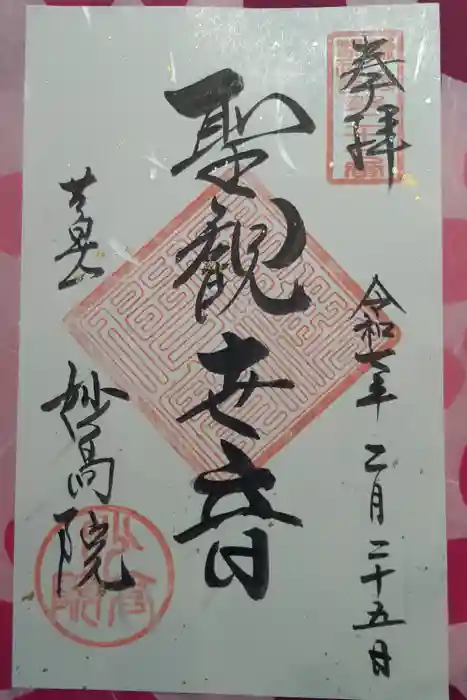 奉拝
聖観世音
令和七年 二月二十五日
妙高院